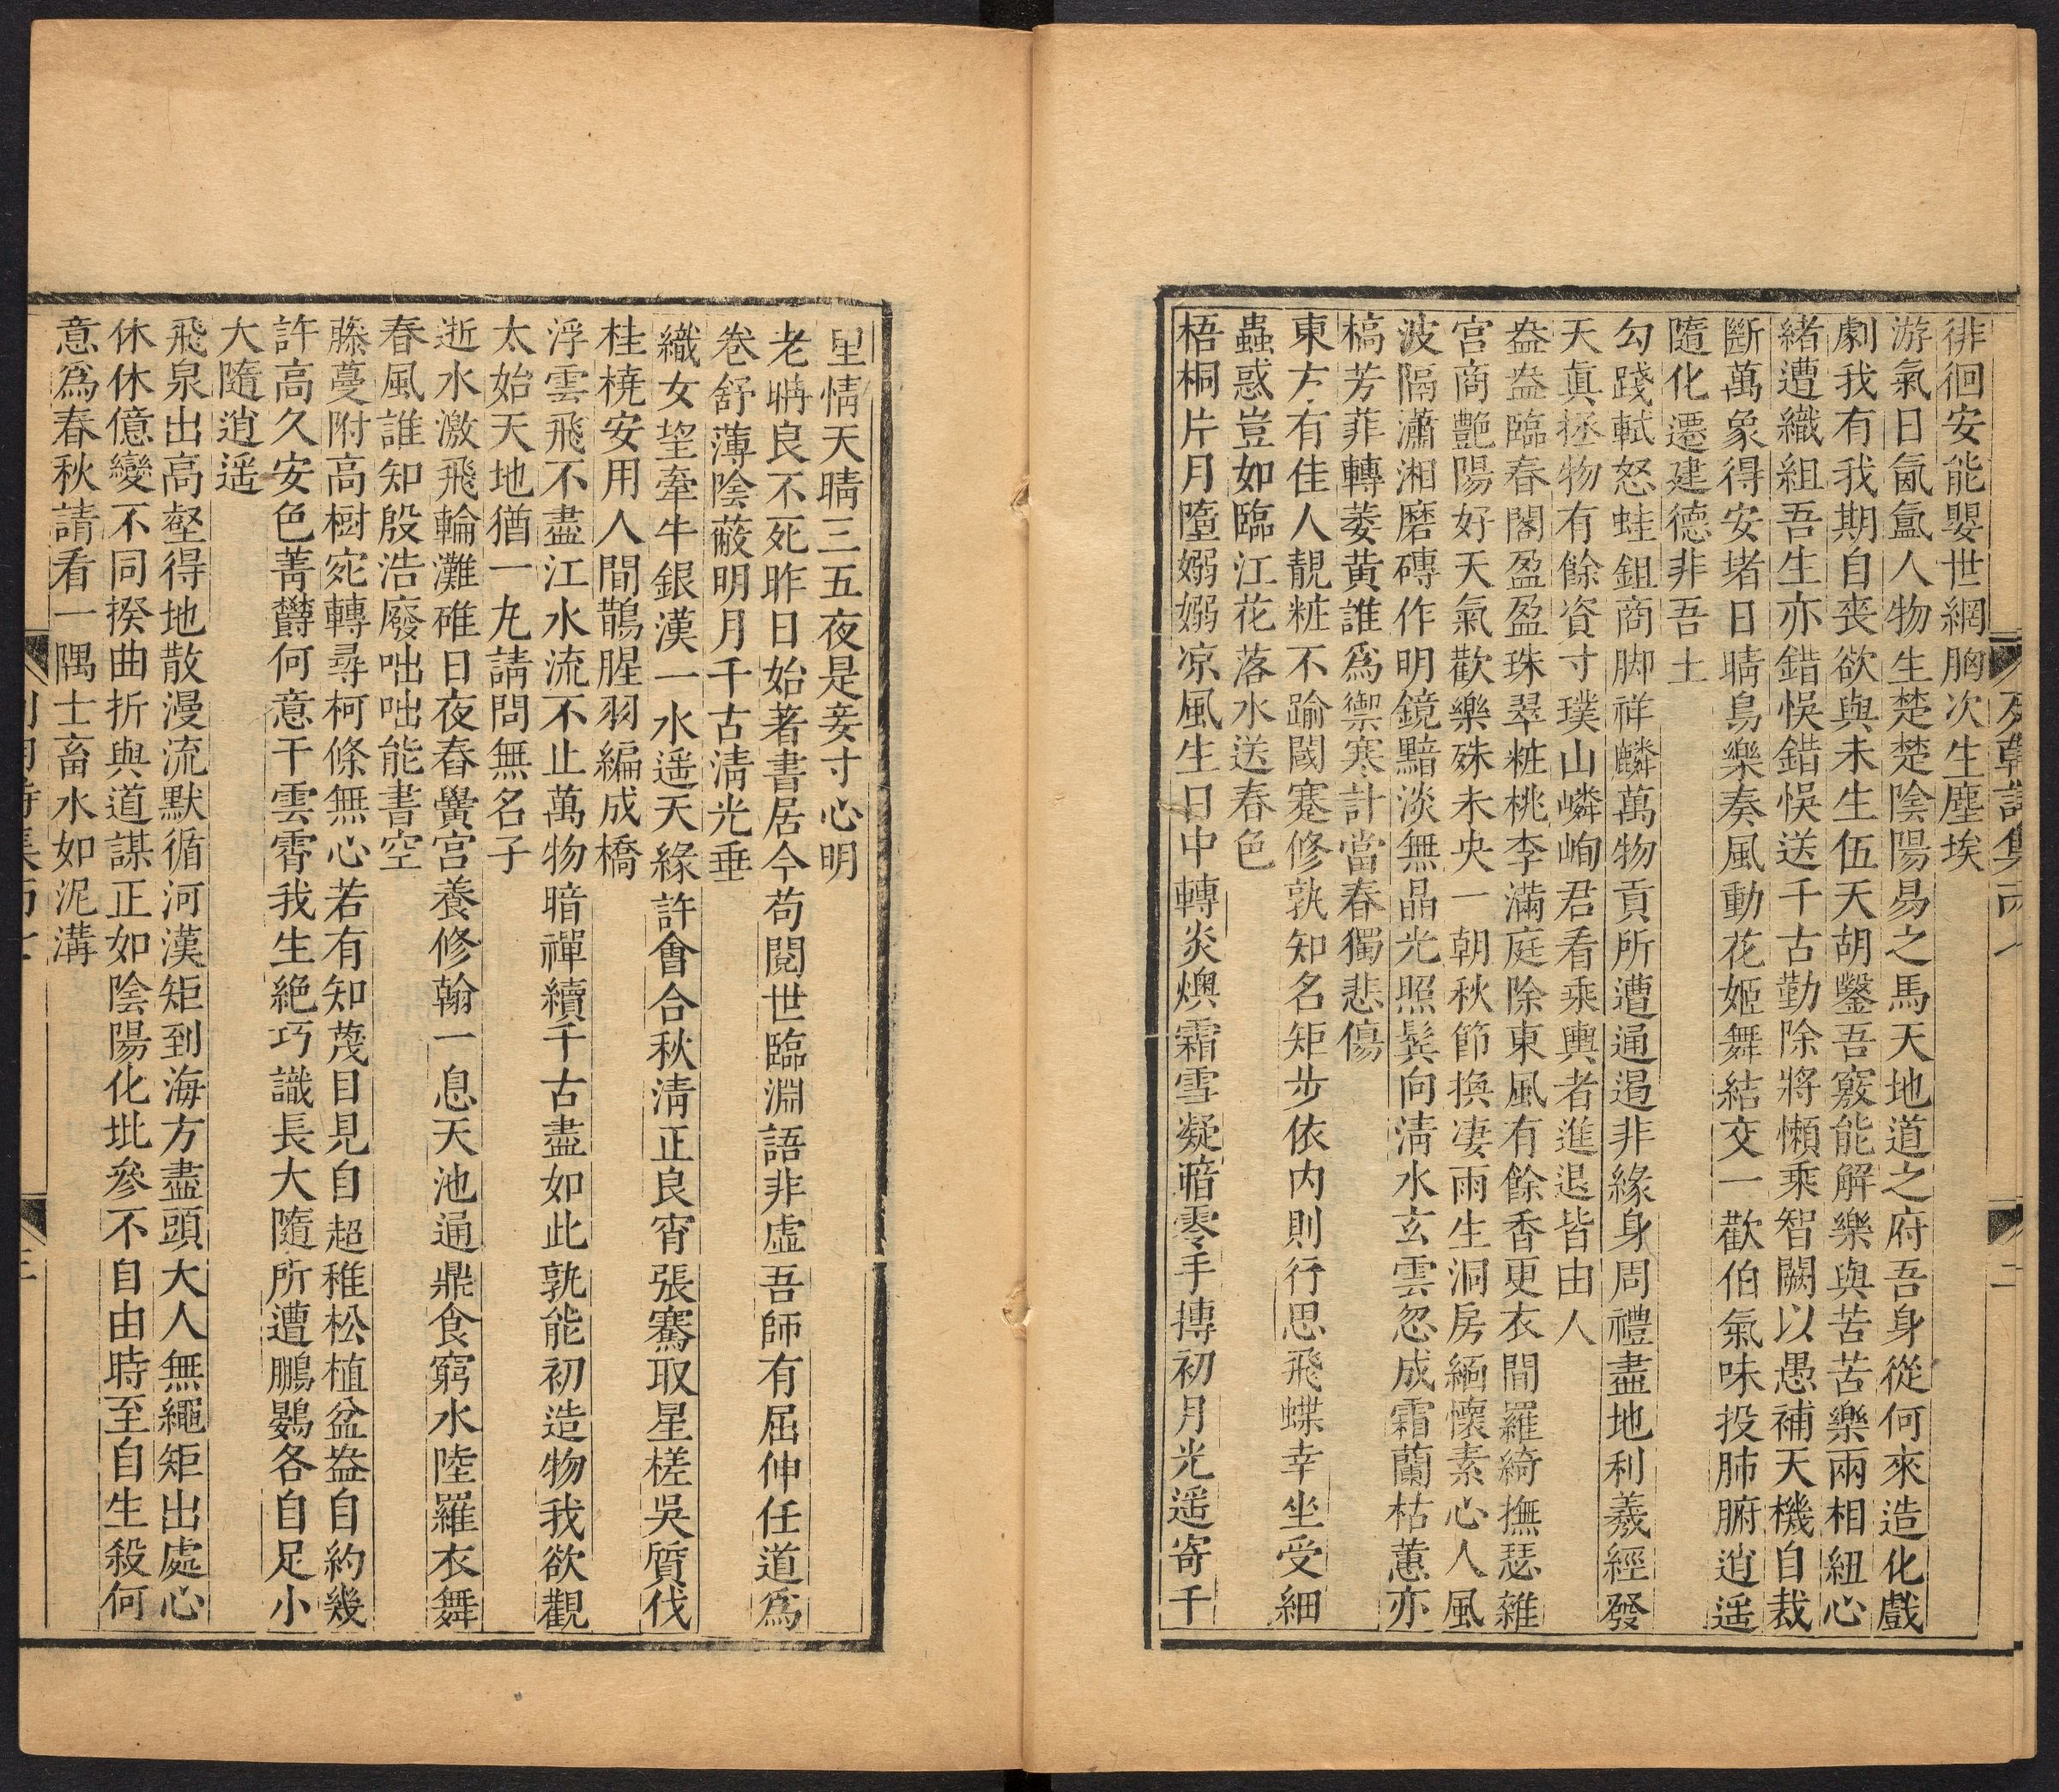 徘徊安能嬰世網胸次生塵埃
游氣日氤氳人物生楚楚陰陽易之馬天地道之府吾身從何來造化戲
劇我有我期自喪欲與未生伍天胡鑿吾竅能解樂與苦苦樂兩相紐心
緒遭織組吾生亦錯悞錯悞送千古勤除將懶乘智闕以愚補天機自裁
斷萬象得安堵日晴鳥樂奏風動花姬舞結交一歡伯氣味投肺腑逍遥
隨化遷建德非吾土
勾踐軾怒蛙鉏商脚祥麟萬物貢所遭通遏非緣身周禮盡地利羲經發
天眞拯物有餘資寸璞山嶙峋君看乘輿者進退皆由人
盎盎臨春閣盈盈珠翠粧桃李滿庭除東風有餘香更衣間羅綺撫瑟雜
宮商艷陽好天氣歡樂殊未央一朝秋節換凄雨生洞房緬懷素心人風
波隔瀟湘磨磚作明鏡黯淡無晶光照鬓向淸水玄雲忽成霜蘭枯蕙亦
槁芳菲轉萎黃誰爲禦寒計當春獨悲傷
東方有佳人靚粧不踰閾蹇修孰知名矩步依內則行思飛蝶幸坐受細
蟲惑豈如臨江花落水送春色
梧桐片月墮嫋嫋凉風生日中轉炎燠霜雪凝暗零手摶初月光遥寄千
里情天晴三五夜是妾寸心明
老聃良不死昨日始著書居今苟閱世臨淵語非虛吾師有屈伸任道爲
卷舒薄陰蔽明月千古淸光垂
織女望牽牛銀漢一水遥天緣許會合秋淸正良宵張騫取星槎吳質伐
桂橈安用人間鵲腥羽編成橋
浮雲飛不盡江水流不止萬物暗禪續千古盡如此孰能初造物我欲觀
太始天地猶一九請問無名子
逝水激飛輪灘碓日夜舂黌宮養修翰一息天池通鼎食窮水陸羅衣舞
春風誰知殷浩廢咄咄能書空
藤蔓附高樹宛轉尋柯條無心若有知蔑目見自超稚松植盆盎自約幾
許高久安色菁欝何意干雲霄我生絶巧識長大隨所遭鵬鷃各自足小
大隨逍遥
飛泉出高壑得地散漫流默循河漢矩到海方盡頭大人無繩矩出處心
休休億變不同揆曲折與道謀正如陰陽化坒參不自由時至自生殺何
意爲春秋請看一隅士畜水如泥溝